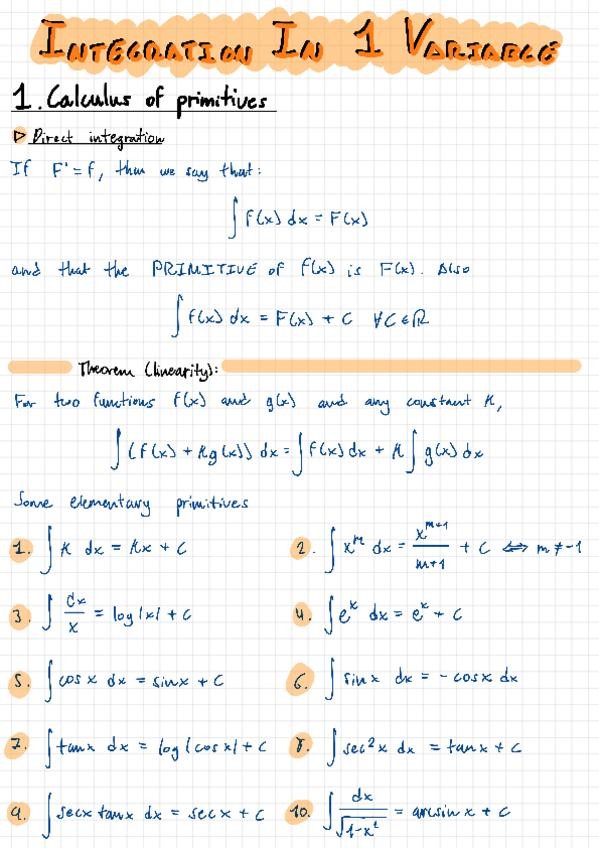 INTEGRATION IN 1 VARIABLE
1. Calculus of primitives
▷ Direct integration
If F' = f, then we say that:
∫ f(x) dx = F(x)
and that the PRIMITIVE of f(x) is F(x). Also
∫ f(x) dx = F(x) + C ∀C∈ℝ
Theorem (linearity):
For two functions f(x) and g(x) and any constant K,
∫ (f(x) + Kg(x)) dx = ∫ f(x) dx + K ∫ g(x) dx
Some elementary primitives
1. ∫ K dx = Kx + C 2. ∫ x^m dx = x^(m+1)/(m+1) + C ⟺ m ≠ -1
3. ∫ dx/x = log|x| + C 4. ∫ e^x dx = e^x + C
5. ∫ cos x dx = sin x + C 6. ∫ sin x dx = - cos x dx
7. ∫ tan x dx = log|cos x| + C 8. ∫ sec²x dx = tan x + C
9. ∫ sec x tan x dx = sec x + C 10. ∫ dx/√(1-x²) = arcsin x + C